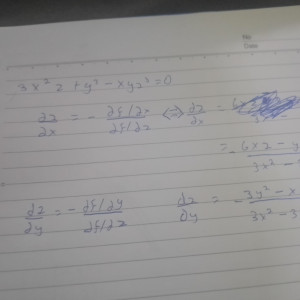 No
Date
3x²z + y³ - xyz³ = 0
∂z/∂x = - (∂f/∂x)/(∂f/∂z) <=> ∂z/∂x =
= - (6xz - y)/(3x² -
∂z/∂y = - (∂f/∂y)/(∂f/∂z) ∂z/∂y = - (3y² - x)/(3x² - 3